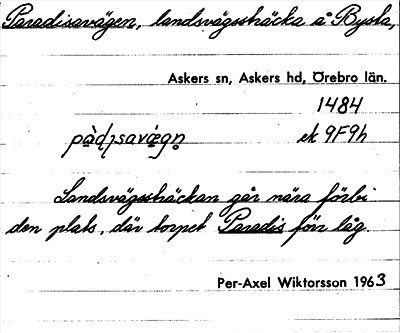 Paradisavägen, landsvägssträcka å Bysta,
Askers sn, Askers hd, Örebro län.
1484
ek 9F9h
Landsvägssträckan går nära förbi
den plats, där torpet Paradis förr låg.
Per-Axel Wiktorsson 1963